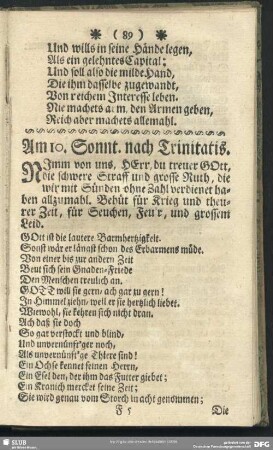 ( 89 )
Und wills in seine Hände legen,
Als ein gelehntes Capital;
Und soll also die milde Hand,
Die ihm dasselbe zugewandt,
Von reichem Interesse leben.
Nie machets arm, den Armen geben,
Reich aber machets allemahl.
Am 10. Sonnt. nach Trinitatis.
NImm von uns, HErr, du treuer GOtt,
die schwere Straff und grosse Ruth, die
wir mit Sünden ohne Zahl verdienet ha-
ben allzumahl. Behüt für Krieg und theu-
rer Zeit, für Seuchen, Feu'r, und grossem
Leid.
GOtt ist die lautere Barmhertzigkeit.
Sonst wär er längst schon des Erbarmens müde.
Von einer bis zur andern Zeit
Beut sich sein Gnaden-Friede
Den Menschen treulich an.
GOTT will sie gern, ach gar zu gern!
In Himmel ziehn, weil er sie hertzlich liebet.
Wiewohl, sie kehren sich nicht dran.
Ach daß sie doch
So gar verstockt und blind,
Und unvernünft'ger noch,
Als unvernünft'ge Thiere sind!
Ein Ochse kennet seinen Herrn,
Ein Esel den, der ihm das Futter giebet;
Ein Kranich mercket seine Zeit;
Sie wird genau vom Storch in acht genommen;
F 5 Die
SLUB